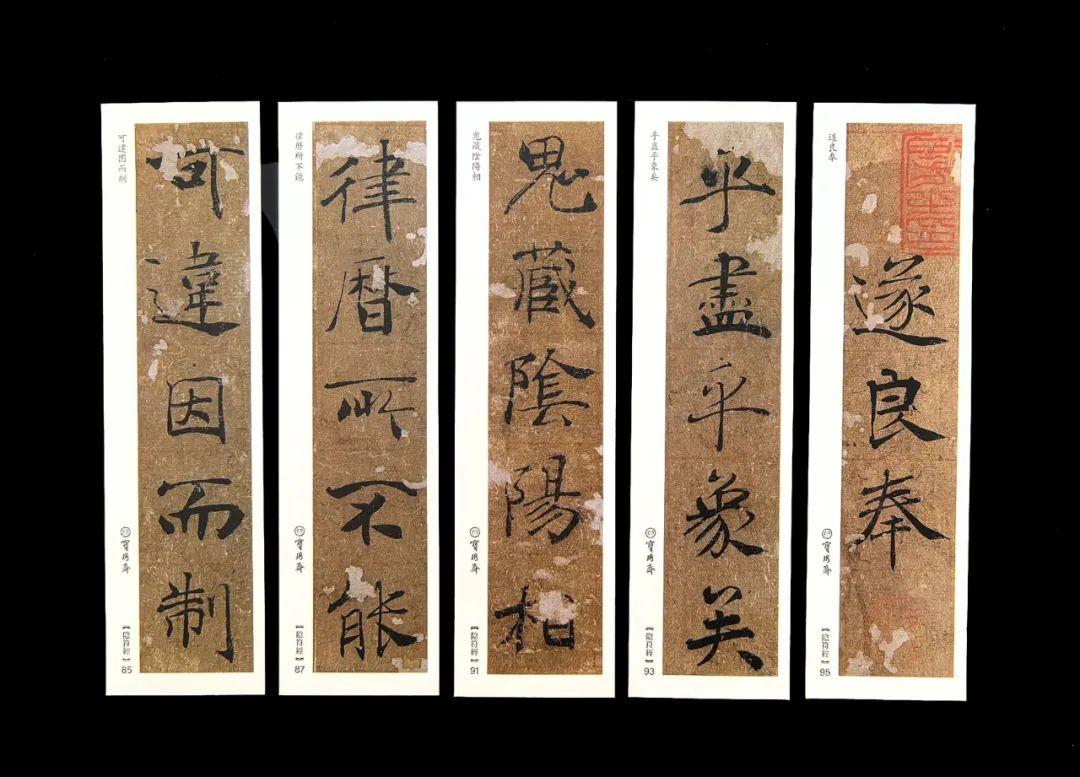 可違因而制
可違因而制
【陰符經】85
律暦所不能
律暦所不能
【陰符經】87
鬼藏陰陽相
鬼藏陰陽相
【陰符經】91
乎盡乎象矣
乎盡乎象矣
【陰符經】93
遂良奉
遂良奉
【陰符經】95